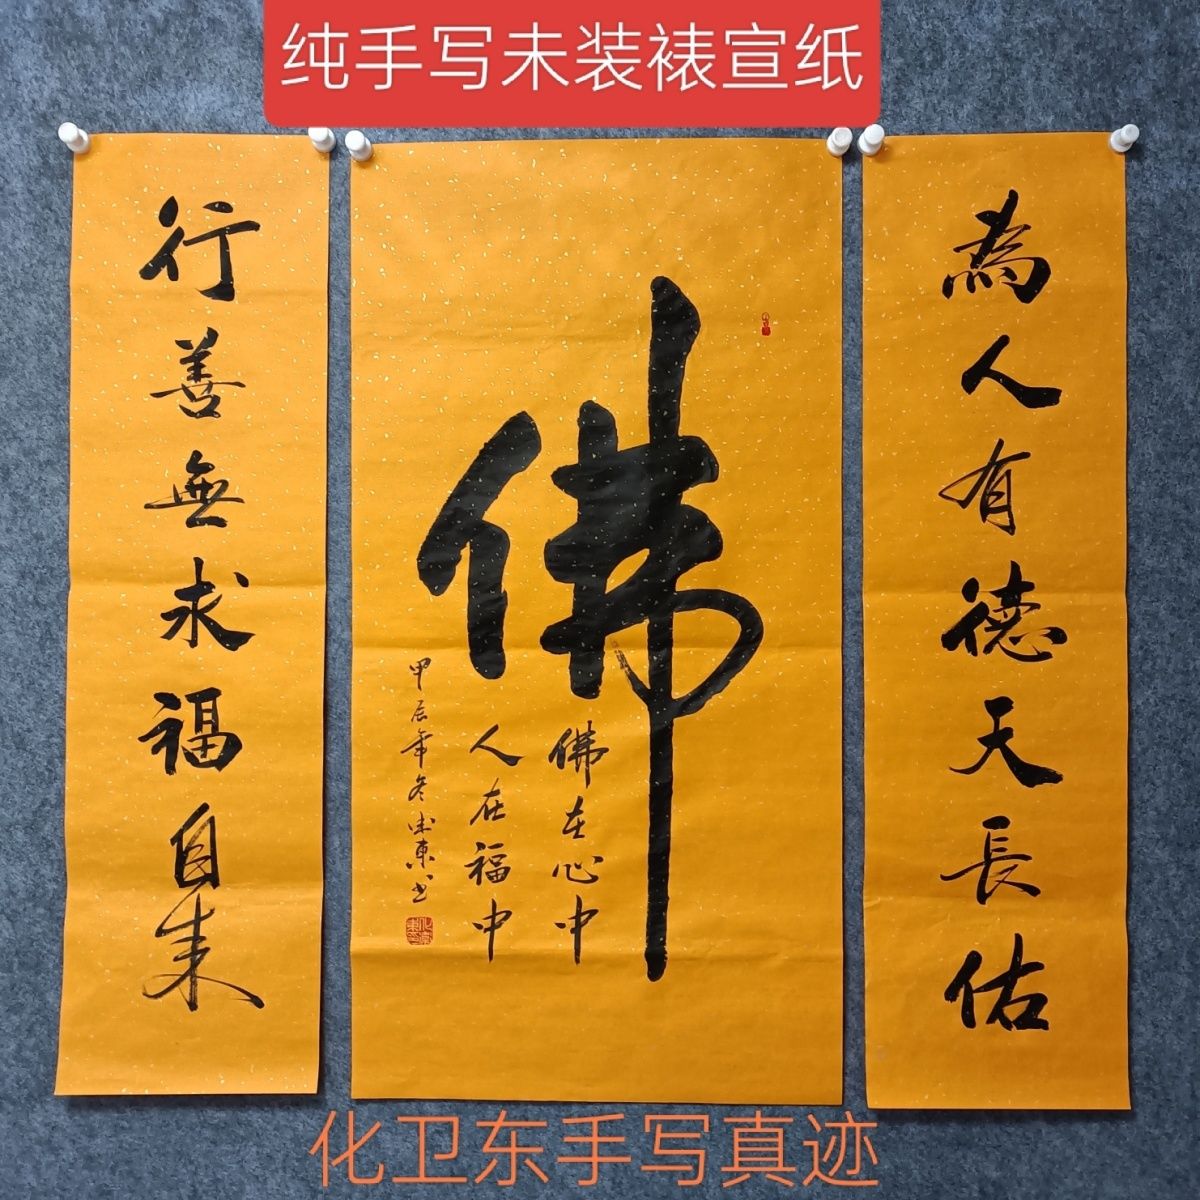 纯手写未装裱宣纸
為人有德天長佑
佛
佛在心中
人在福中
甲辰年冬衛東书
行善無求福自来
化卫东手写真迹